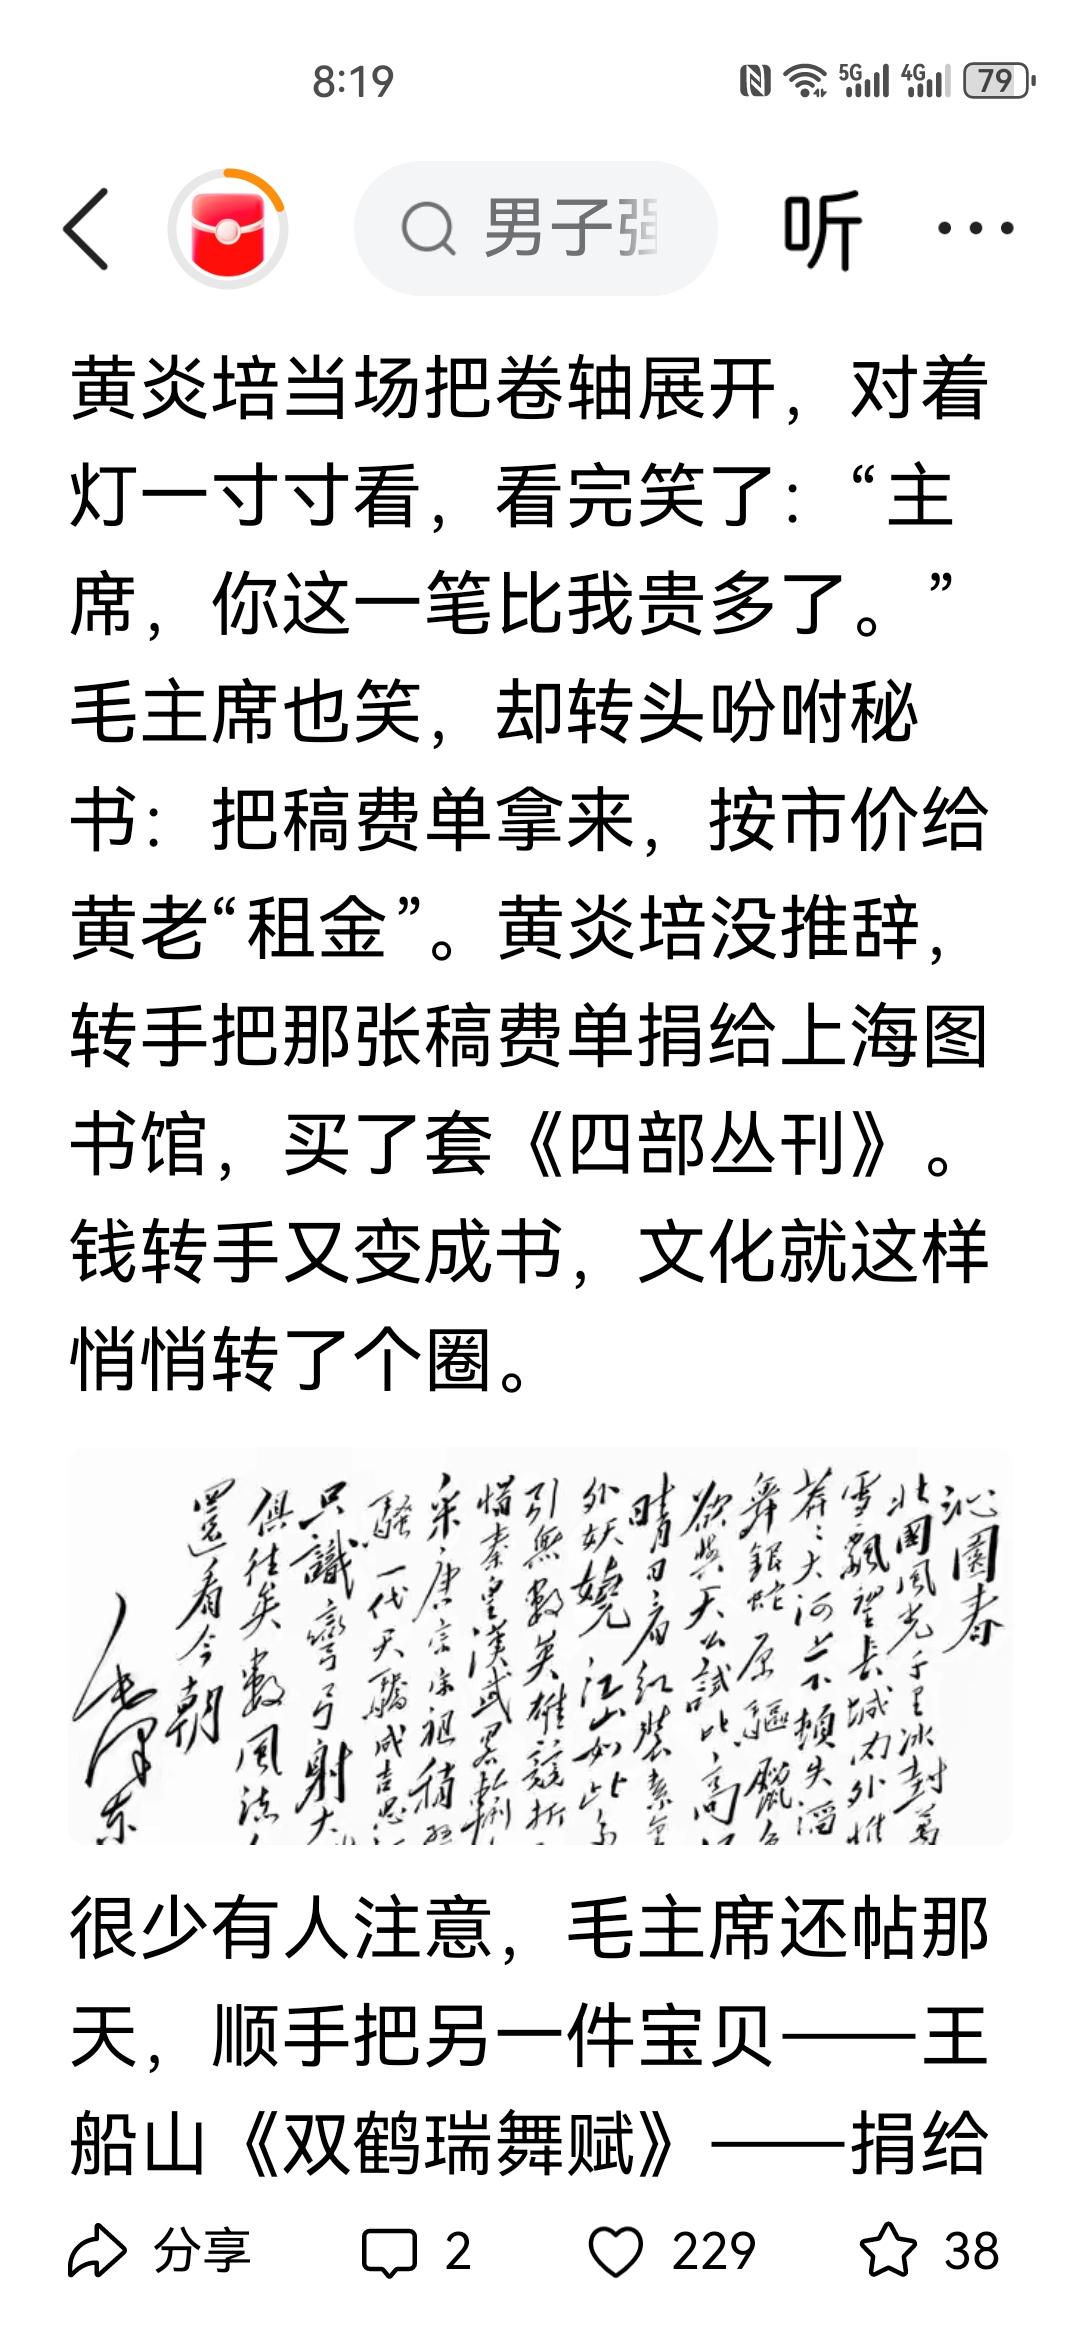 8:19
5G 4G 79
男子强
听
黄炎培当场把卷轴展开，对着
灯一寸寸看，看完笑了：“主
席，你这一笔比我贵多了。”
毛主席也笑，却转头吩咐秘
书：把稿费单拿来，按市价给
黄老“租金”。黄炎培没推辞，
转手把那张稿费单捐给上海图
书馆，买了套《四部丛刊》。
钱转手又变成书，文化就这样
悄悄转了个圈。
沁園春
北國風光千里冰封萬
雪飄望長城内外惟
莽莽大河上下頓失滔
舞銀蛇原驅臘象
欲與天公試比高
晴日看红装素
外妖嬈江山如此多
引無數英雄競折
惜秦皇漢武略輸
采唐宗宋祖稍
騷一代天驕成吉思
只識彎弓射大
俱往矣數風流
還看今朝
毛泽东
很少有人注意，毛主席还帖那
天，顺手把另一件宝贝——王
船山《双鹤瑞舞赋》——捐给
分享 2 229 38